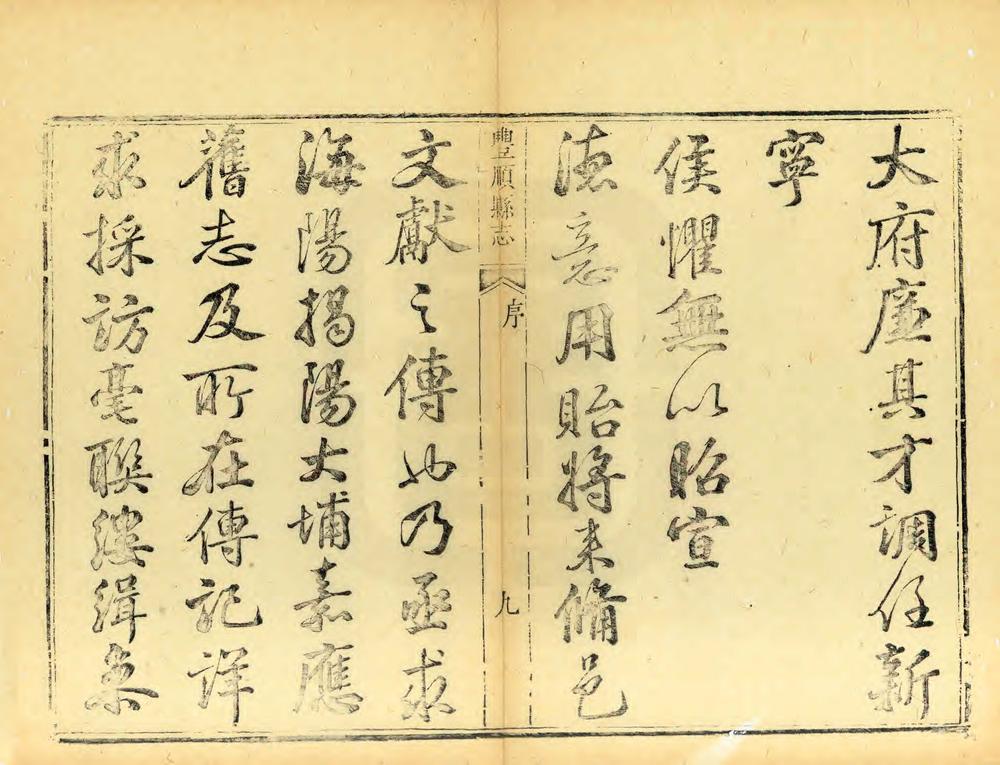 大府廉其才調任新
寧
侯懼無以昭宣
德意用貽將来脩邑
豐順縣志
序
九
文獻之傳也乃亟求
海陽揭陽大埔嘉應
舊志及所在傳記詳
求採訪毫聯縷緝